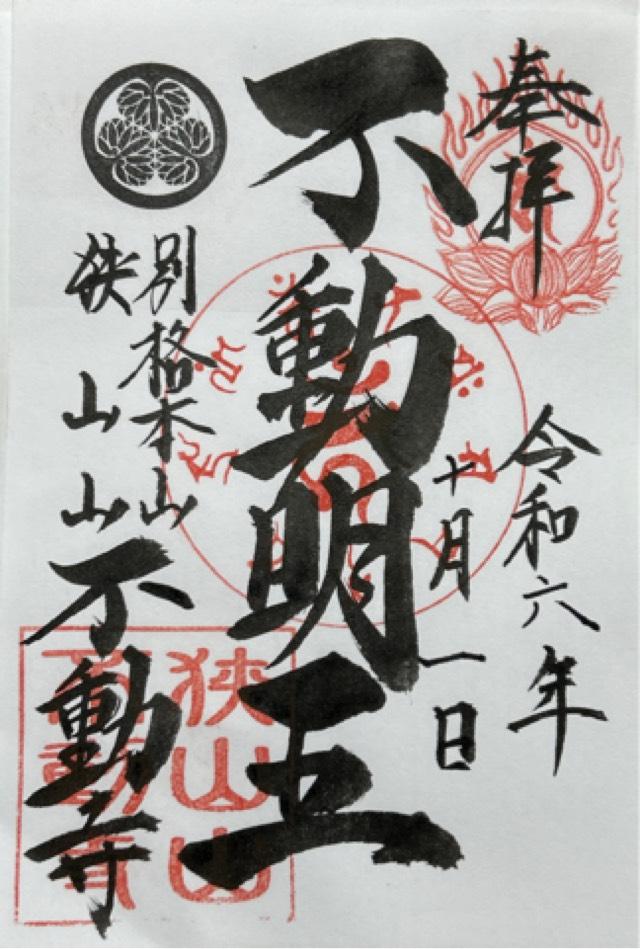 奉拝
令和六年
十月一日
不動明王
別格本山
狭山山不動寺
狭山山
不動寺